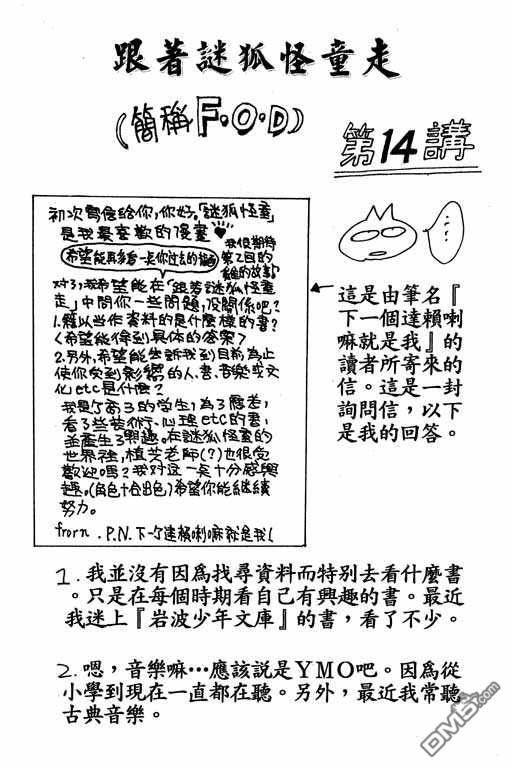 跟著謎狐怪童走
(簡稱F·O·D)
第14講
初次寫信給你,你好,「謎狐怪童」
是我最喜歡的漫畫
我很期待
第2回的
希望能再多看一点你过去的插画
对了,我希望能在「跟著謎狐怪童
走」中問你一些問題,没關係吧?
1.籍以当作資料的是什麼樣的書?
(希望能得到具体的答案)
2.另外,希望能告訴我到目前為止
使你受到影響的人、書、音樂或文
化etc是什麼?
看了些藝術、心理etc的書,
並產生了興趣。在謎狐怪童的
老師(?)也很受
歡迎嗎?我对这一点十分感興
趣。(角色十分出色)希望你能継續
努力。
from.P.N.下一个達賴喇嘛就是我!
這是由筆名『
下一個達賴喇
嘛就是我』的
讀者所寄來的
信。這是一封
詢問信,以下
是我的回答。
1.我並沒有因為找尋資料而特別去看什麼書
。只是在每個時期看自己有興趣的書。最近
我迷上『岩波少年文庫』的書,看了不少。
2.嗯,音樂嘛…應該說是YMO吧。因為從
小學到現在一直都在聽。另外,最近我常聽
古典音樂。
DM5.com